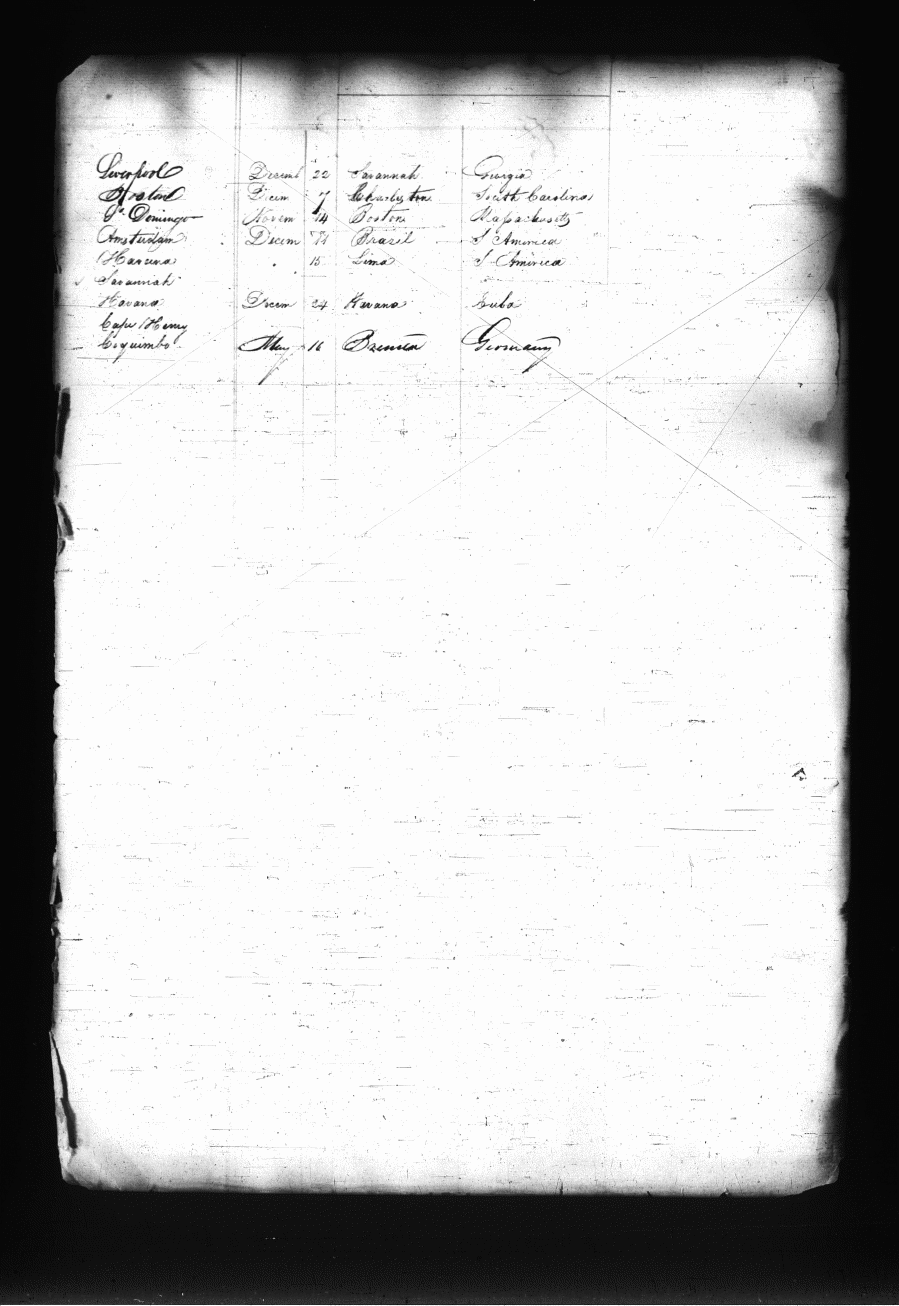 Liverpool Decem 22 Savannah Georgia
Boston Decem 7 Charleston South Carolina
St. Domingo Novem 14 Boston Massachusetts
Amsterdam Decem 11 Brazil S America
Havana " 15 Lima S America
Savannah
Havana Decem 24 Havana Cuba
Cape Henry
Coquimbo May 16 Bremen Germany